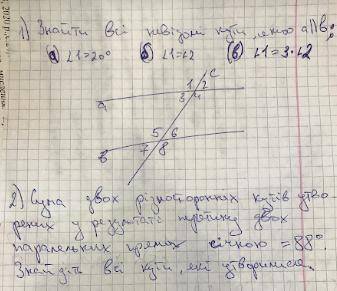 1) Знайти всі невідомі кути, якщо a||b:
а) ∠1=20° б) ∠1=∠2 в) ∠1=3·∠2
c
1 2
3 4
a
5 6
7 8
b
2) Сума двох різносторонніх кутів утво
рених у результаті перетину двох
паралельних прямих січною =88°.
Знайдіть всі кути, які утворилися.